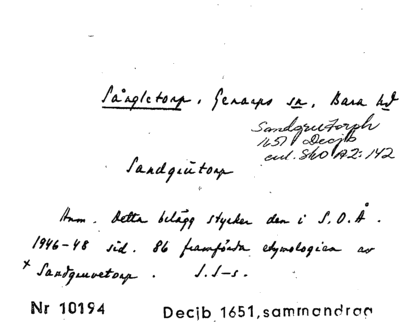 Sångletorp, Genarps sn, Bara hd
Sandgrutorph
1651 Decjb
enl. SkO A2:142
Sandgrutorp
Anm. Detta belägg styrker den i S.O.Å.
1946-48 sid. 86 framförda etymologien av
* Sandgruvetorp. S.I-s.
Nr 10194 Decjb 1651, sammandrag